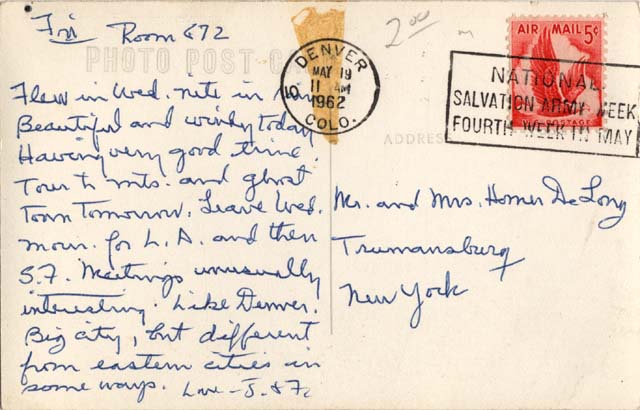 Fri Room 672
PHOTO POST CARD
Flew in Wed. nite in rain
Beautiful and windy today
Having very good time.
Tour to mts. and ghost
Town Tomorrow. Leave Wed.
morn. for L.A. and then
S.F. Meetings unusually
interesting. Like Denver.
Big city, but different
from eastern cities in
some ways. Love - J. & F.
2.00
DENVER
5 MAY 19
11 AM
1962
COLO.
AIR MAIL 5¢
POSTAGE
NATIONAL
SALVATION ARMY WEEK
FOURTH WEEK IN MAY
ADDRESS
Mr. and Mrs. Homer DeLong
Trumansburg
New York